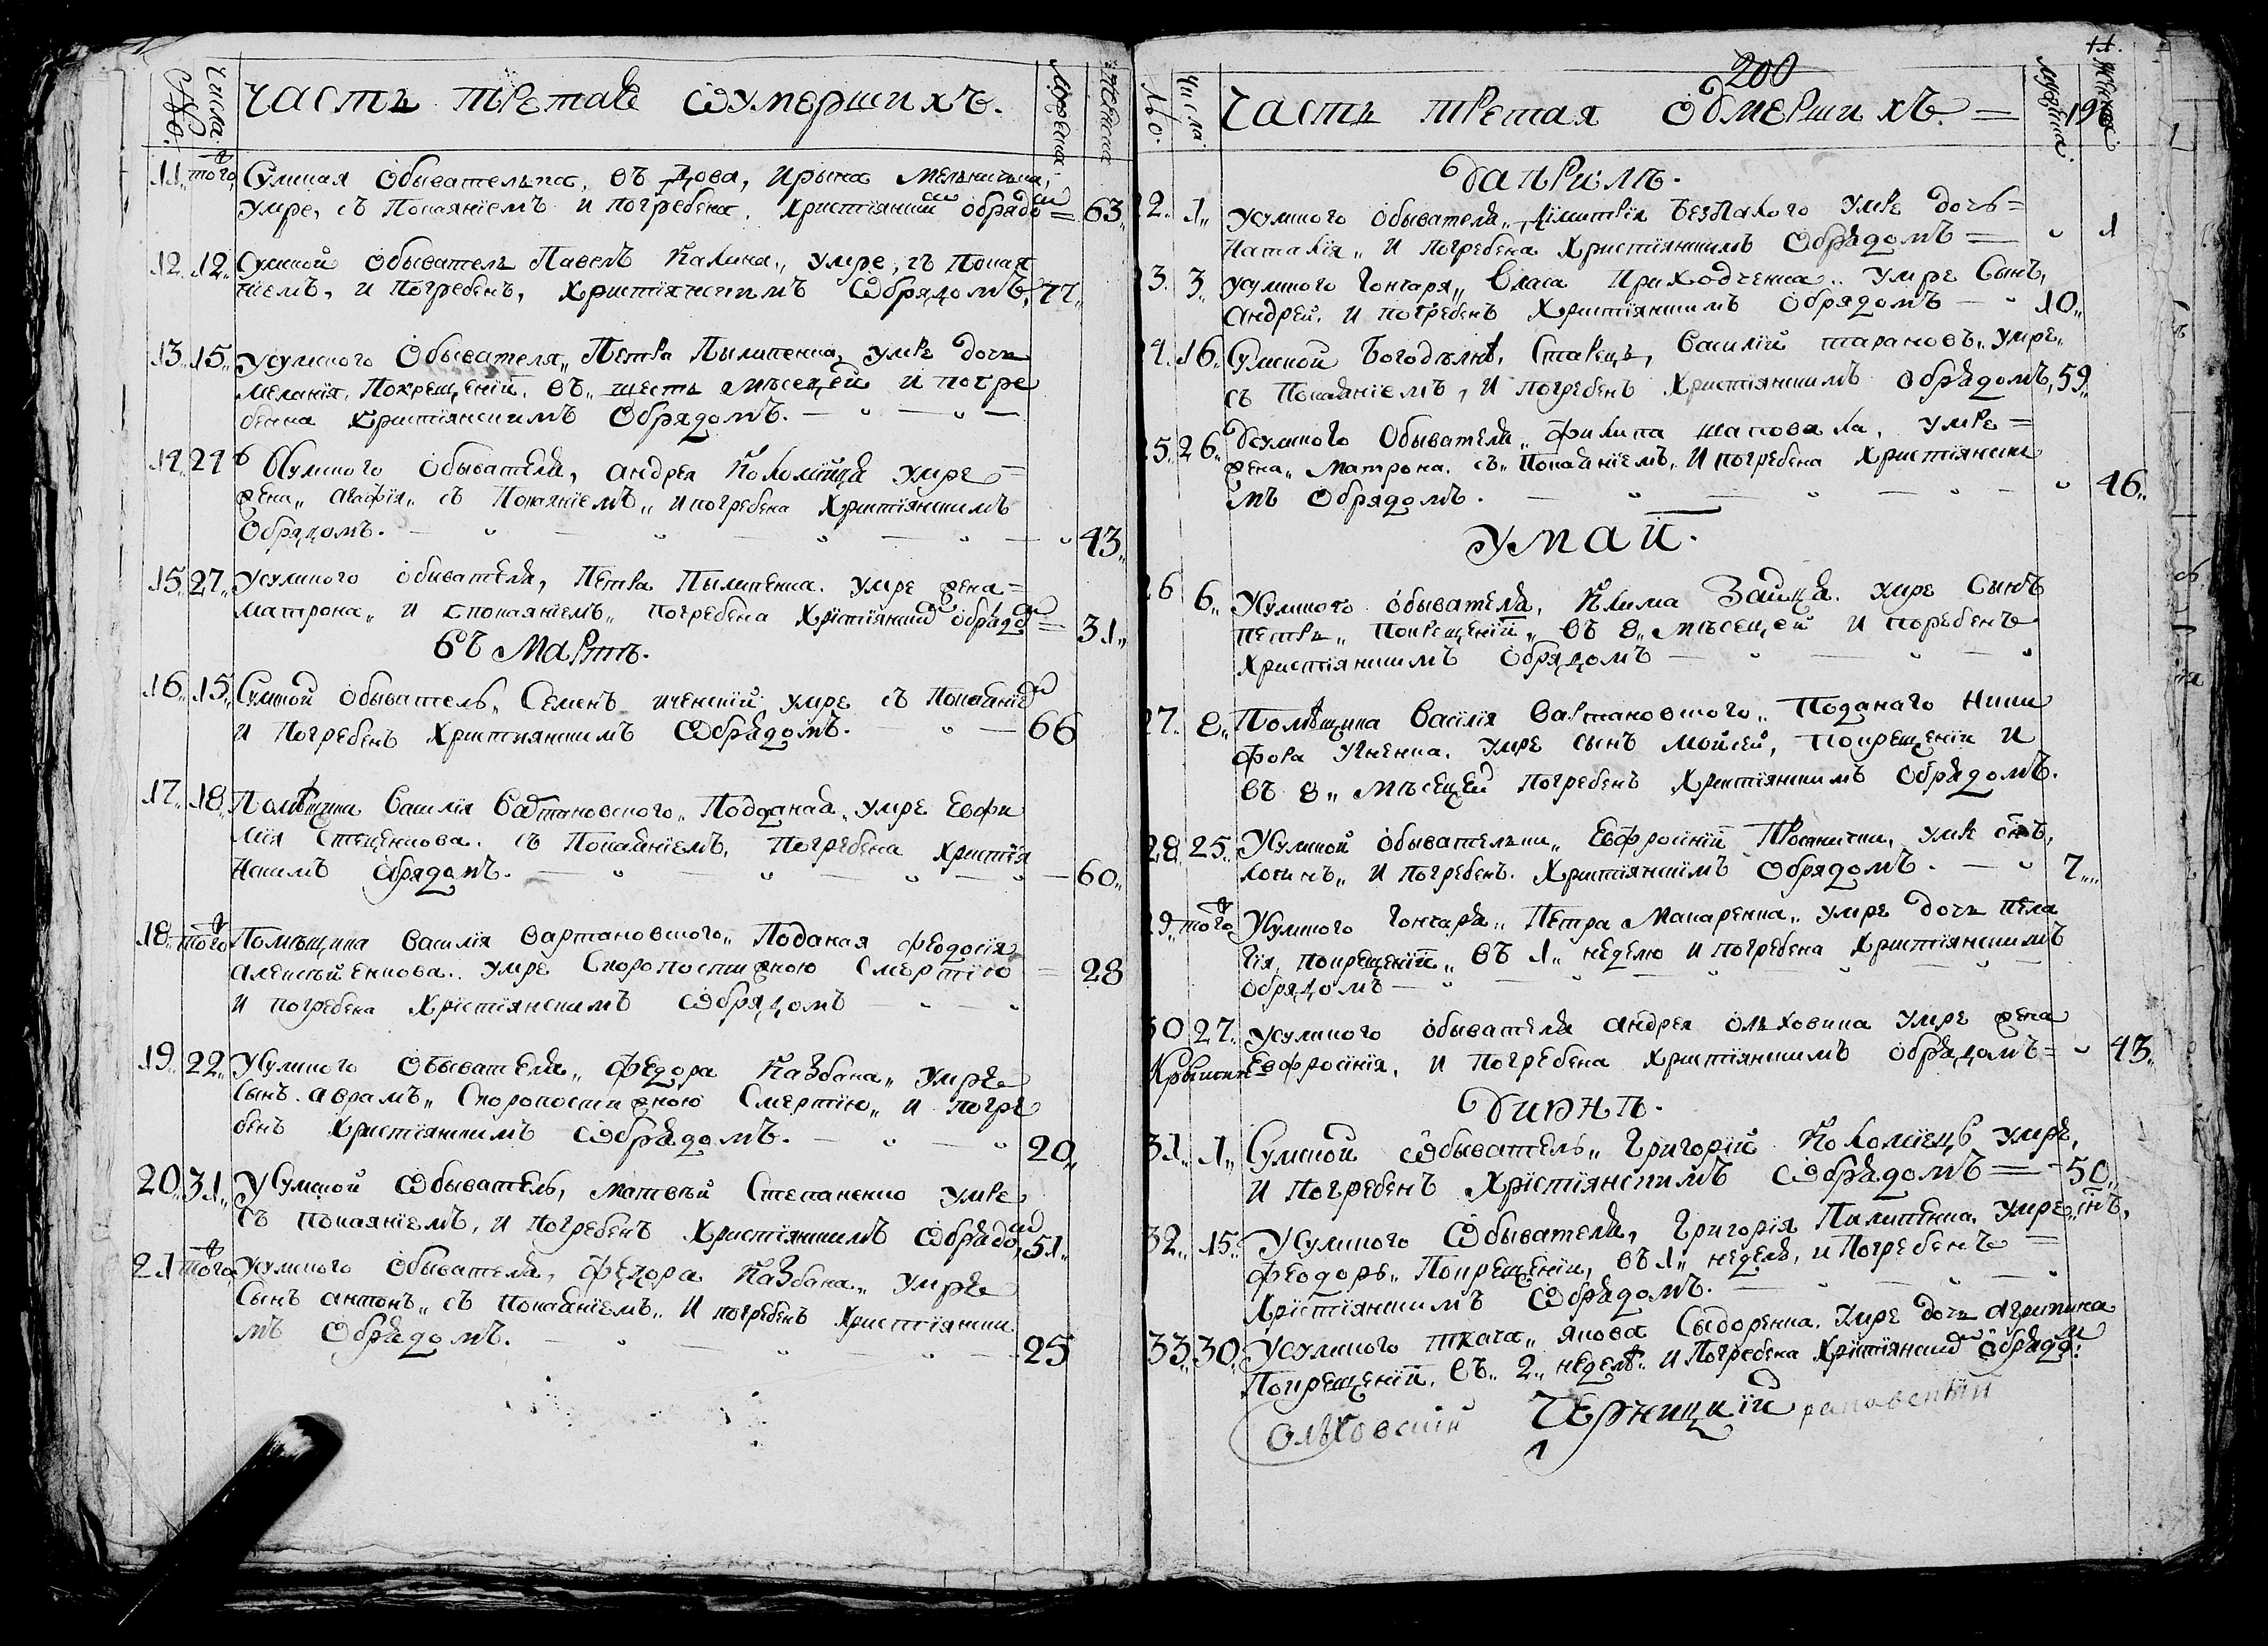 Числа.
Часть третая ѡумершихъ.
11. того Сумная Обывателька, въдова, Ирына Мельничка,
умре, съ Покаяніемъ и погребена. Христіянским обрядом = 63.
12. 12. Сумской Обыватель Павелъ Калина, умре, съ Покая
ніемъ, и Погребенъ, Христіянскимъ Ѡбрядомъ, 77.
13. 15. Усумского Обывателя, Петра Пылипенка, умре дочь
Меланія. Покрещеніи, въ шесть мѣсецей и погре
бенна Христіянскимъ Обрядомъ.
14. 24 Усумского Обывателя, андрея Коломійця умре
жена, агафія, съ Покаяніемъ, и погребена Христіянскимъ
Обрядомъ. 43.
15. 27. Усумского обивателя, Петра Пылипенка. умре жена =
матрона, и спокаяніемъ, погребена Хрістіянским обрядом = 31.
Въ Мартѣ.
16. 15. Сумской Обыватель, Семенъ умре съ Покаянием
и Погребенъ Християнскимъ Ѡбрядомъ. 66
17. 18. Помѣщика Василія Вартановского, Подданая, умре Евфи
мія Стеценкова. съ Покаяніемъ, Погребена христія
нскимъ Обрядомъ. 60.
18. того Помѣщика Василія Вартановского, Поданая феодосія
алексѣйенкова.. умре Скоропостижною Смертію = 28
и погребена Хрістіянскимъ Ѡбрядомъ
19. 22. Усумского Обывателя, федора Казбана, умре
Сынъ. аврамъ, Скоропостижною Смертію, и погре
бенъ Христіянскимъ Ѡбрядомъ. 20.
20. 31. Усумской Ѡбыватель, матвѣй Степаненко умре
съ покаяніемъ, и погребенъ Христіянскимъ Ѡбрядом, 51.
21 того Усумского Обывателя, федора Казбана, умре
Сынъ антонъ, съ Покаяніемъ, и погребенъ Христіянски
мъ Обрядомъ. 25
200
Числа.
Часть третая Обмершихъ. =
Ваприлѣ.
22. 1. Усумского Обывателя, Димитрія Безпалого умре дочь =
Наталія, и погребена Християнскимъ Обрядомъ = 1
23. 3. усумского Гончаря, Власа Приходченка.. умре Сынъ,
андрей. и погребенъ Христіянскимъ Обрядомъ 10.
24. 16. Сумской Богодѣлнѣ, Старецъ, Василій тарановъ. умре.
съ Покаяніемъ, и погребенъ Христіянскимъ обрядомъ, 59.
25. 26. Всумского Обывателя, филипа шаповала, умре =
жена, Матрона. съ Покаяніемъ, и погребена Христіянски
мъ Обрядомъ. 46.
У маи.
26 6. Усумского Обывателя, Клима Зайца. умре Сынъ
петръ, Покрещеніи, въ 8, мѣсецей и погребенъ
Христіянскимъ Обрядомъ
27. 8. Помѣщика Василія Вартановского, Поданаго Ники
фора умре сынъ Мойсей, Покрещеніи и
въ 8, мѣсецей погребенъ Христіянскимъ Обрядомъ.
28. 25. Усумской Обывательки, Евфросиніи умре снъ,
логинъ, и Погребенъ. Христіянскимъ Обрядомъ. 7.
29. того Усумского Гончаря, Петра Макаренка, умре дочь пела
гія, покрещеніи, въ 1, неделю и погребена Христіянскимъ
обрядомъ
30 27. усумского обывателя андрея Ольховика умре жена
Евфросінія, и Погребена Христіянскимъ обрядомъ = 43.
Виюнѣ.
31. 1. Сумской Ѡбыватель, Григорій Коломіецъ умре,
и Погребенъ Хрістіянскимъ Ѡбрядомъ = 50.
32. 15. Усумского Ѡбывателя, Григорія Пилипенка умре, снъ,
феодоръ, Покрещеніи, въ 1, неделя, и Погребенъ =
Хрістіянскимъ Ѡбрядомъ.
33. 30. Усумского ткача, якова Сыдоренка. умре дочь агрипина
Покрещеніи, въ, 2, неделѣ, и Погребена Хрістіянским Обрядом:
Ольховскій Черницкій